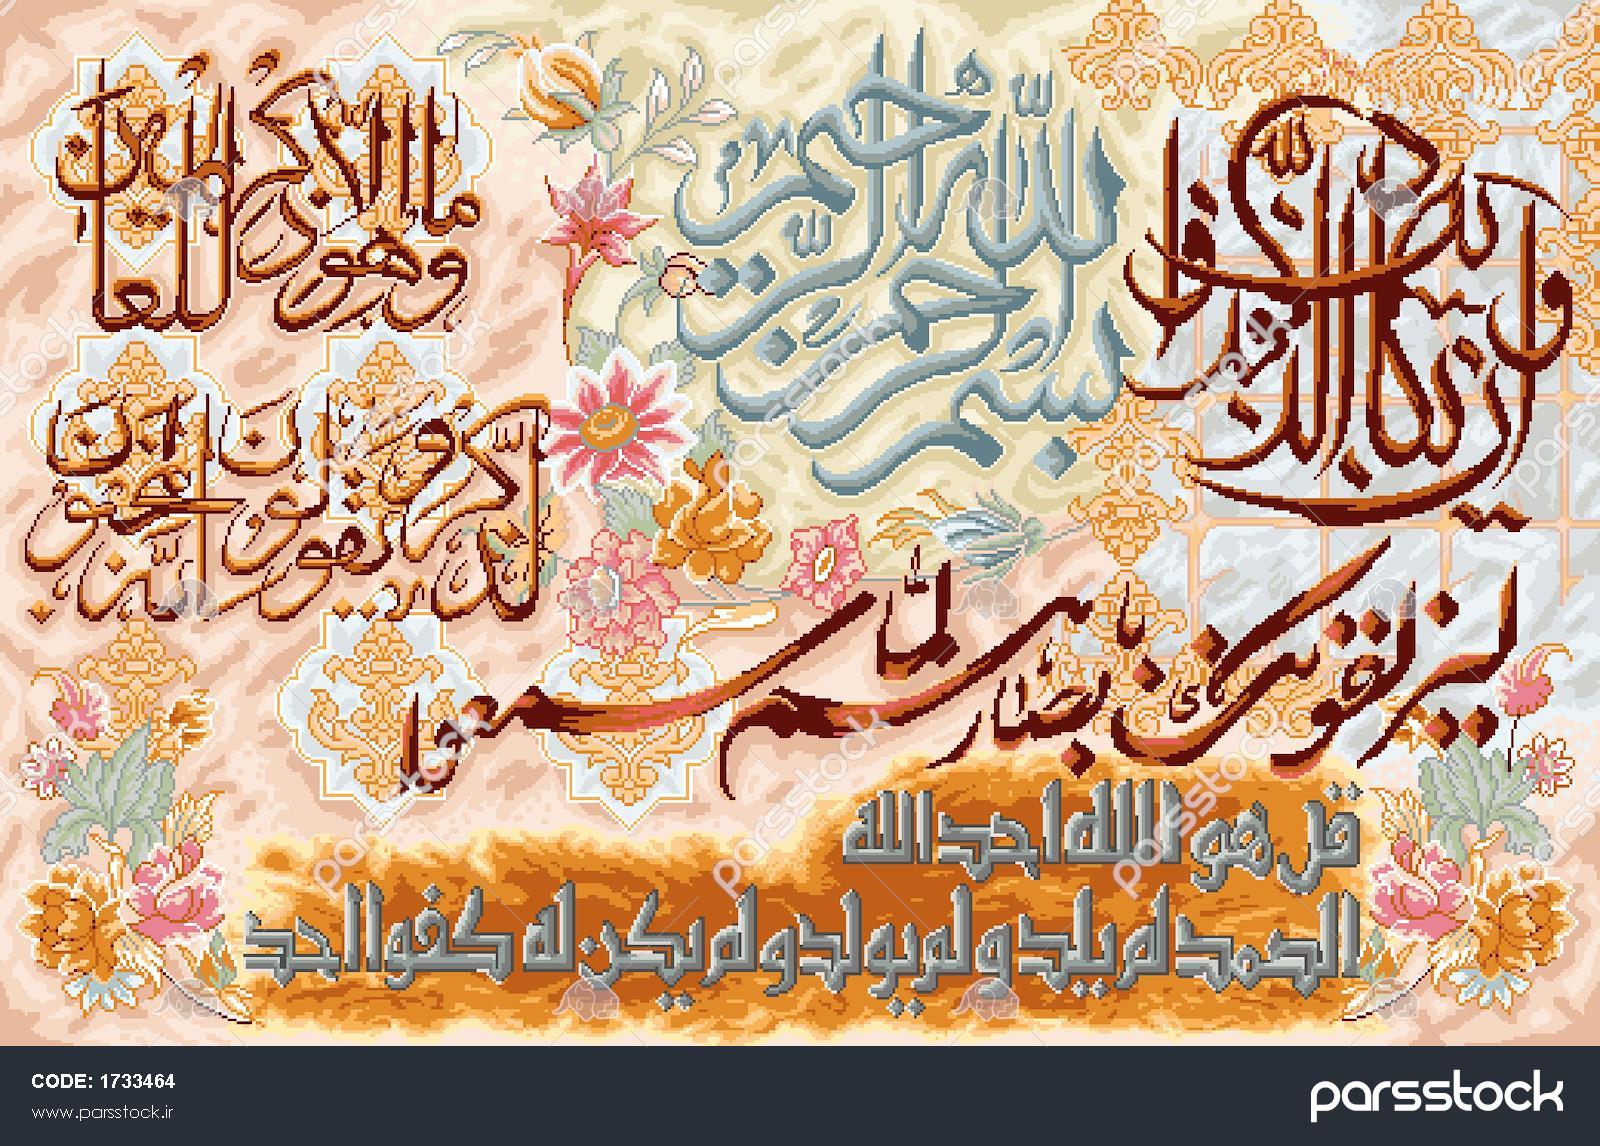 بسم الله الرحمن الرحیم
وإن یکاد الذین کفروا
لیزلقونک بأبصارهم لما سمعوا
الذکر ویقولون إنه لمجنون
وما هو إلا ذکر للعالمین
قل هو الله احد الله
الصمد لم یلد و لم یولد و لم یکن له کفوا احد
CODE: 1733464
www.parsstock.ir
parsstock